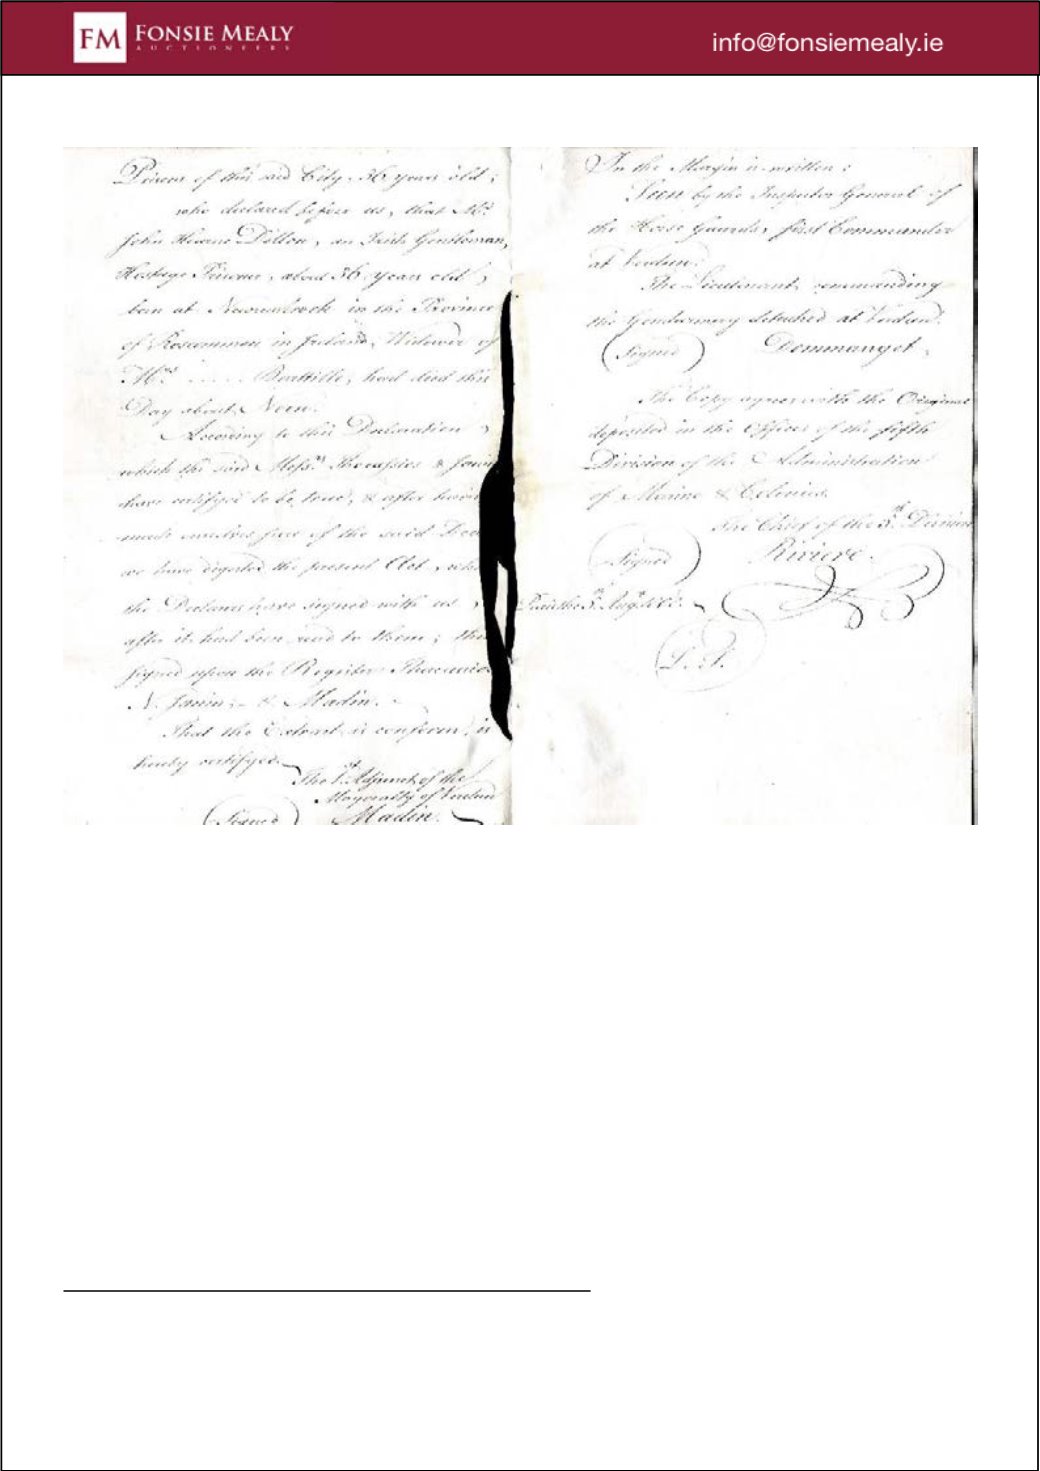 FM FONSIE MEALY
AUCTIONEERS
info@fonsiemealy.ie
of this said City 36 years old;
who declared before us, that Mr.
John Dillon, an Irish Gentleman,
Hostage Prisoner, about 36 years old
born at in the Province
of Roscommon in Ireland, Widower of
Mrs. ..... had died this
Day about Noon.
According to this Declaration,
which the said Messrs. &
have certifyed to be true, & after having
made ourselves sure of the said
we have digested the present Act,
the have signed with us
after it had been read to them; the
signed upon the Register
N. Janin, - & Madin.
That the Extract is conform, is
hereby certifyed.
The 1st. Adjunct of the
Mayoralty of Verdun
(Signed) Madin.
In the Margin is written:
Seen by the Inspector General of
the Horse Guards, first Commander
at Verdun.
The Lieutenant, commanding
the Gendarmery detached at Verdun.
(Signed) Demmanget.
The Copy agrees with the Original
deposited in the Office of the fifth
Division of the Administration
of Marine & Colonies.
The Chief of the 5th. Division
(Signed) Riviere.
the